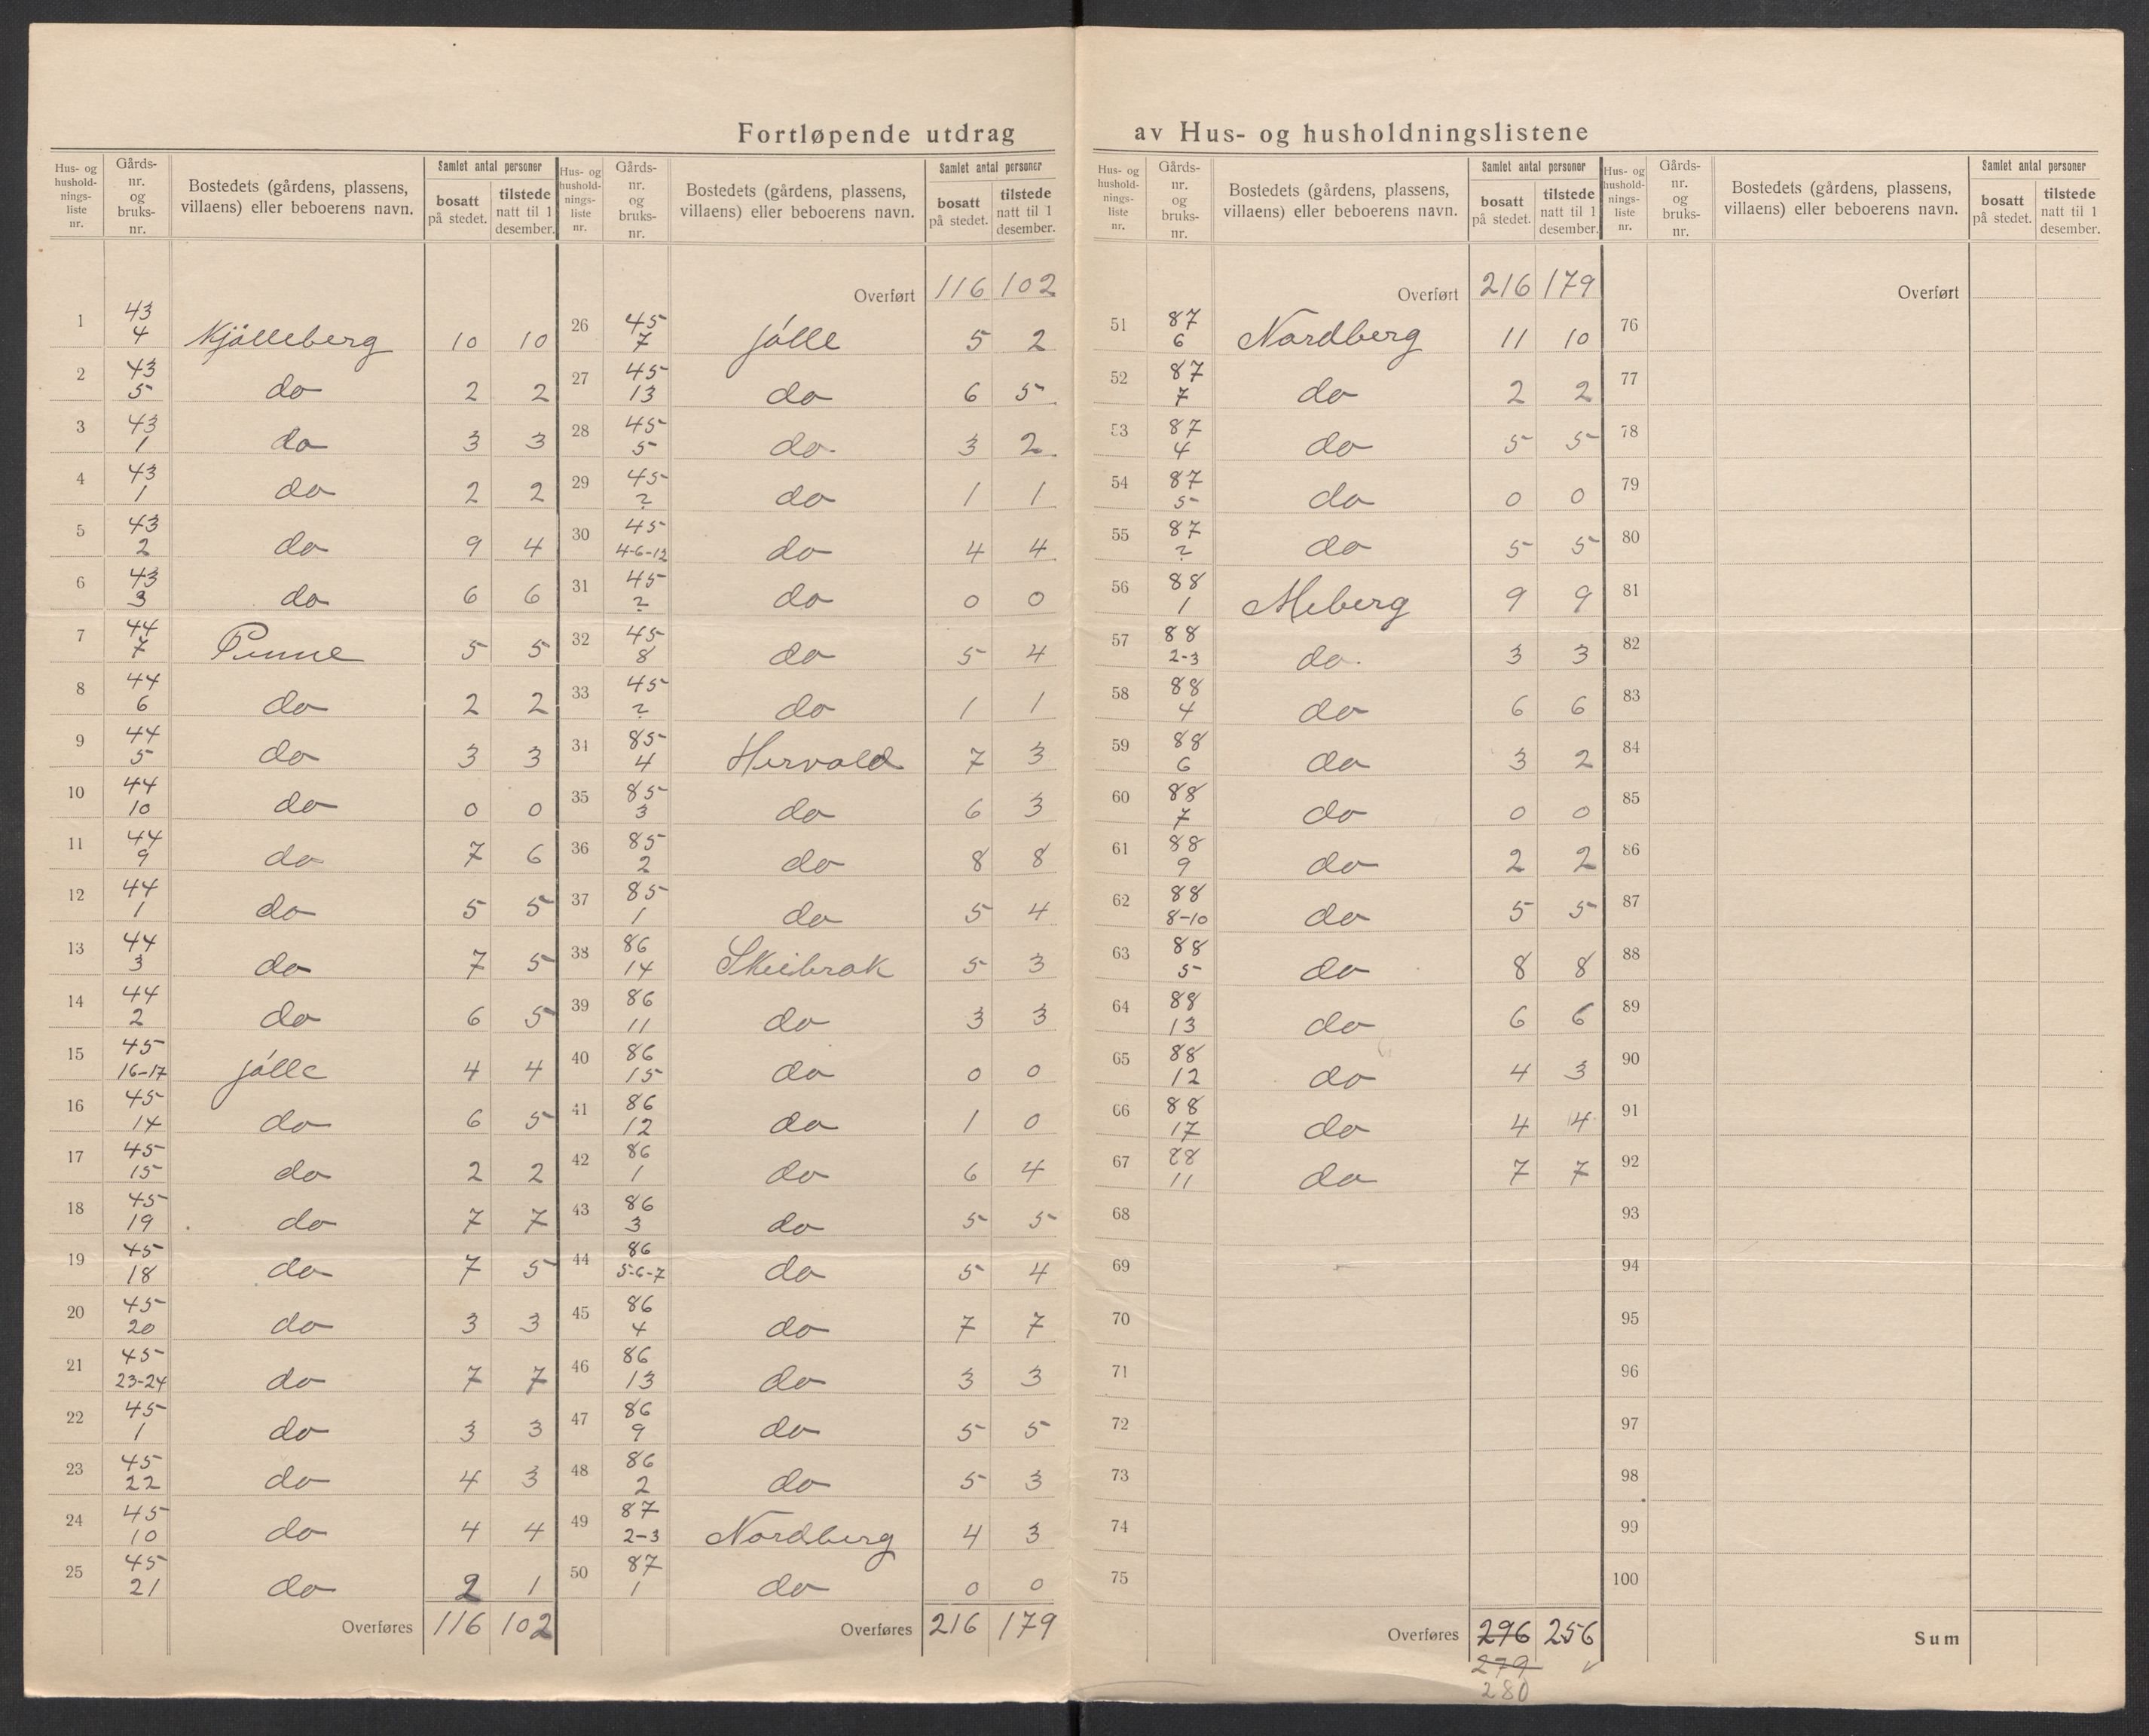 Fortløpende utdrag av Hus- og husholdningslistene
Hus- og husholdningsliste nr. | Gårds- nr. og bruks- nr. | Bostedets (gårdens, plassens, villaens) eller beboerens navn. | Samlet antal personer bosatt på stedet. | tilstede natt til 1 desember.
1 43 4 Kjölleberg 10 10
2 43 5 do 2 2
3 43 1 do 3 3
4 43 1 do 2 2
5 43 2 do 9 4
6 43 3 do 6 6
7 44 7 Penne 5 5
8 44 6 do 2 2
9 44 5 do 3 3
10 44 10 do 0 0
11 44 9 do 7 6
12 44 1 do 5 5
13 44 3 do 7 5
14 44 2 do 6 5
15 45 16-17 Jölle 4 4
16 45 14 do 6 5
17 45 15 do 2 2
18 45 19 do 7 7
19 45 18 do 7 5
20 45 20 do 3 3
21 45 23-24 do 7 7
22 45 1 do 3 3
23 45 22 do 4 3
24 45 10 do 4 4
25 45 21 do 2 1
Overføres 116 102
Hus- og husholdningsliste nr. | Gårds- nr. og bruks- nr. | Bostedets (gårdens, plassens, villaens) eller beboerens navn. | Samlet antal personer bosatt på stedet. | tilstede natt til 1 desember.
Overført 116 102
26 45 7 Jölle 5 2
27 45 13 do 6 5
28 45 5 do 3 2
29 45 ? do 1 1
30 45 4-6-12 do 4 4
31 45 ? do 0 0
32 45 8 do 5 4
33 45 ? do 1 1
34 85 4 Hervold 7 3
35 85 3 do 6 3
36 85 2 do 8 8
37 85 1 do 5 4
38 86 14 Skeibrok 5 3
39 86 11 do 3 3
40 86 15 do 0 0
41 86 12 do 1 0
42 86 1 do 6 4
43 86 3 do 5 5
44 86 5-6-7 do 5 4
45 86 4 do 7 7
46 86 13 do 3 3
47 86 9 do 5 5
48 86 2 do 5 3
49 87 2-3 Nordberg 4 3
50 87 1 do 0 0
Overføres 216 179
Hus- og husholdningsliste nr. | Gårds- nr. og bruks- nr. | Bostedets (gårdens, plassens, villaens) eller beboerens navn. | Samlet antal personer bosatt på stedet. | tilstede natt til 1 desember.
Overført 216 179
51 87 6 Nordberg 11 10
52 87 7 do 2 2
53 87 4 do 5 5
54 87 5 do 0 0
55 87 ? do 5 5
56 88 1 Meberg 9 9
57 88 2-3 do. 3 3
58 88 4 do 6 6
59 88 6 do 3 2
60 88 7 do 0 0
61 88 9 do 2 2
62 88 8-10 do 5 5
63 88 5 do 8 8
64 88 13 do 6 6
65 88 12 do 4 3
66 88 17 do 4 4
67 88 11 do 7 7
68
69
70
71
72
73
74
75
Overføres 296 256
279 ✓
280
Hus- og husholdningsliste nr. | Gårds- nr. og bruks- nr. | Bostedets (gårdens, plassens, villaens) eller beboerens navn. | Samlet antal personer bosatt på stedet. | tilstede natt til 1 desember.
Overført
76
77
78
79
80
81
82
83
84
85
86
87
88
89
90
91
92
93
94
95
96
97
98
99
100
Sum